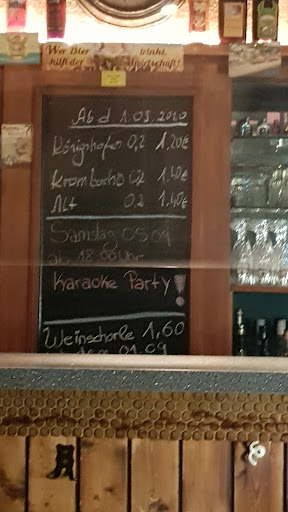 Wer Bier trinkt,
hilft der Landwirtschaft!
Ab d 1.09.2020
Königshofen 0,2 1,20€
Krombacher 0,2 1,40€
Alt 0,2 1,40€
Samstag 05.09
ab 18:00 Uhr
Karaoke Party!
Weinschorle 1,60
01.09